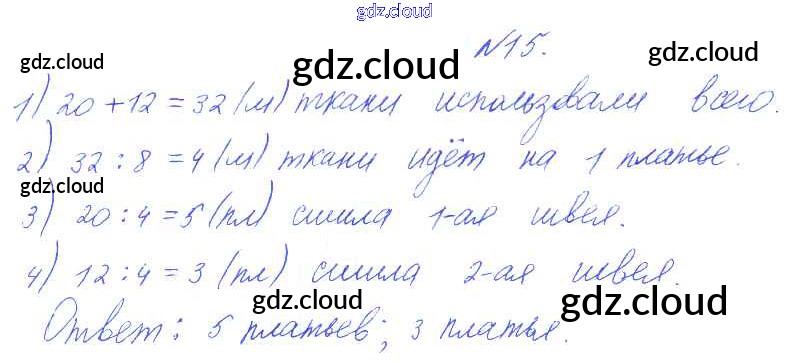 gdz.cloud
№15.
gdz.cloud gdz.cloud gdz.cloud
1) 20 + 12 = 32 (м) ткани использовали всего.
gdz.cloud
2) 32 : 8 = 4 (м) ткани идёт на 1 платье.
gdz.cloud
3) 20 : 4 = 5 (пл) сшила 1-ая швея.
4) 12 : 4 = 3 (пл) сшила 2-ая швея.
gdz.cloud gdz.cloud
Ответ: 5 платьев; 3 платья.
gdz.cloud